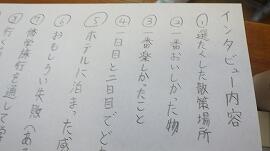 インタビュー内容
①選たくした散策場所
②一番おいしかった物
③一番楽しかったこと
④一日目と二日目でど
⑤ホテルに泊まった感
⑥おもしろい失敗(あ
⑦修学旅行を通して